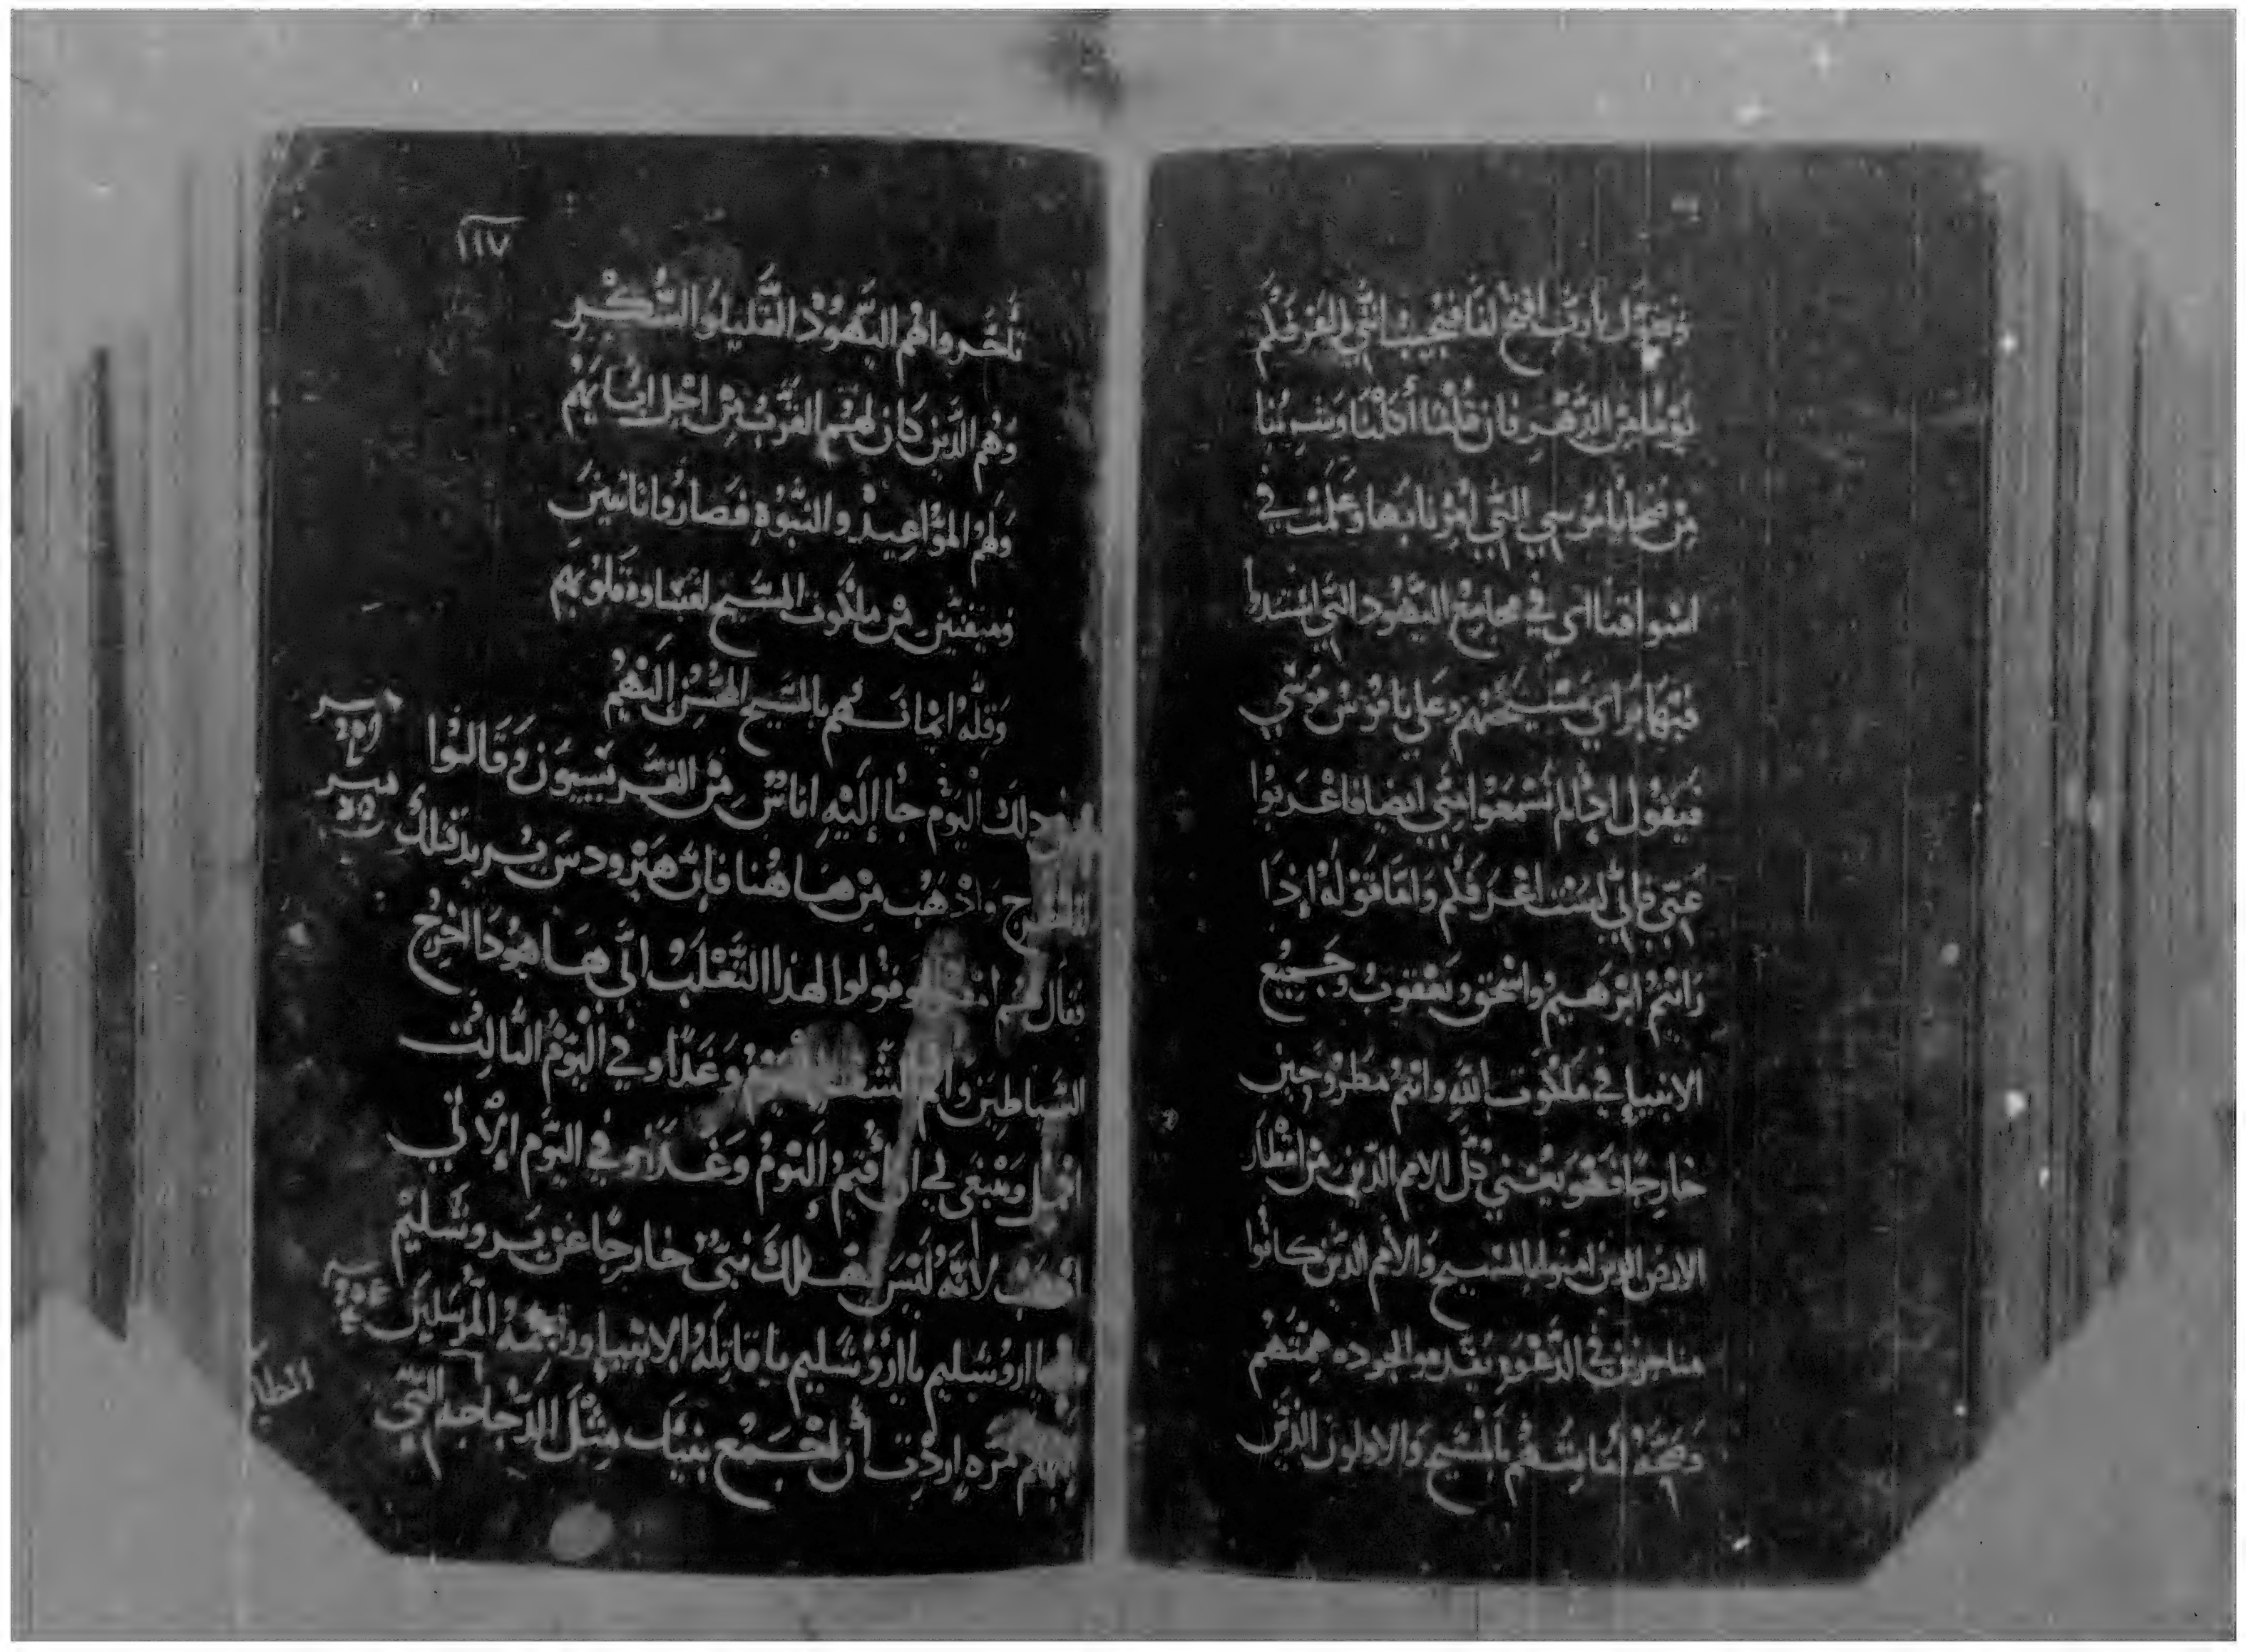 ونقول يا رب افتح لنا فيجيب انني لم اعرفكم
يومًا من الدهر فان قلنا أكلنا وشربنا
من وصايا موسي التي امرنا بها وعلمت في
اسواقنا اي في مجامع اليهود التي
فيها براي مشيختهم وعلي ناموس موسي
فيقول اذا لم تسمعوا مني ايضا فاغربوا
عني فاني لست اعرفكم واما قوله إذا
رايتم ابرهيم واسحق ويعقوب وجميع
الانبيا في ملكوت الله وانتم مطروحين
خارجًا فهو يعني كل الامم الذين من اقطار
الارض الذين امنوا بالمسيح والأمم الذين كانوا
متاخرين في الدعوه همتهم
وصحة أمانتهم بالمسيح والاولون الذين
١١٧
تأخروا هم اليهود القليلوا الشكر
وهم الذين كان لهم القرب من اجل ابايهم
ولهم المواعيد والنبوة فصاروا
من ملكوت المسيح لقساوة قلوبهم
وقلة ايمانهم بالمسيح المحسن اليهم
ذلك اليوم جا إليه اناس من الفريسيون وقالوا
واذهب من هاهنا فإن هيرودس يريد قتلك
فقال لهم وقولوا لهذا الثعلب اني ها هوذا اخرج
الشياطين اليوم وغدًا وفي اليوم الثالث
اكمل وينبغي لي ان أقيم اليوم وغدًا وفي اليوم الآتي
اذهب لأنه ليس يهلك نبي خارجًا عن يروشليم
يا اروشليم يا اروشليم يا قاتلة الانبيا وراجمة المرسلين
كم مره اردت أن اجمع بنيك مثل الدجاجه التي